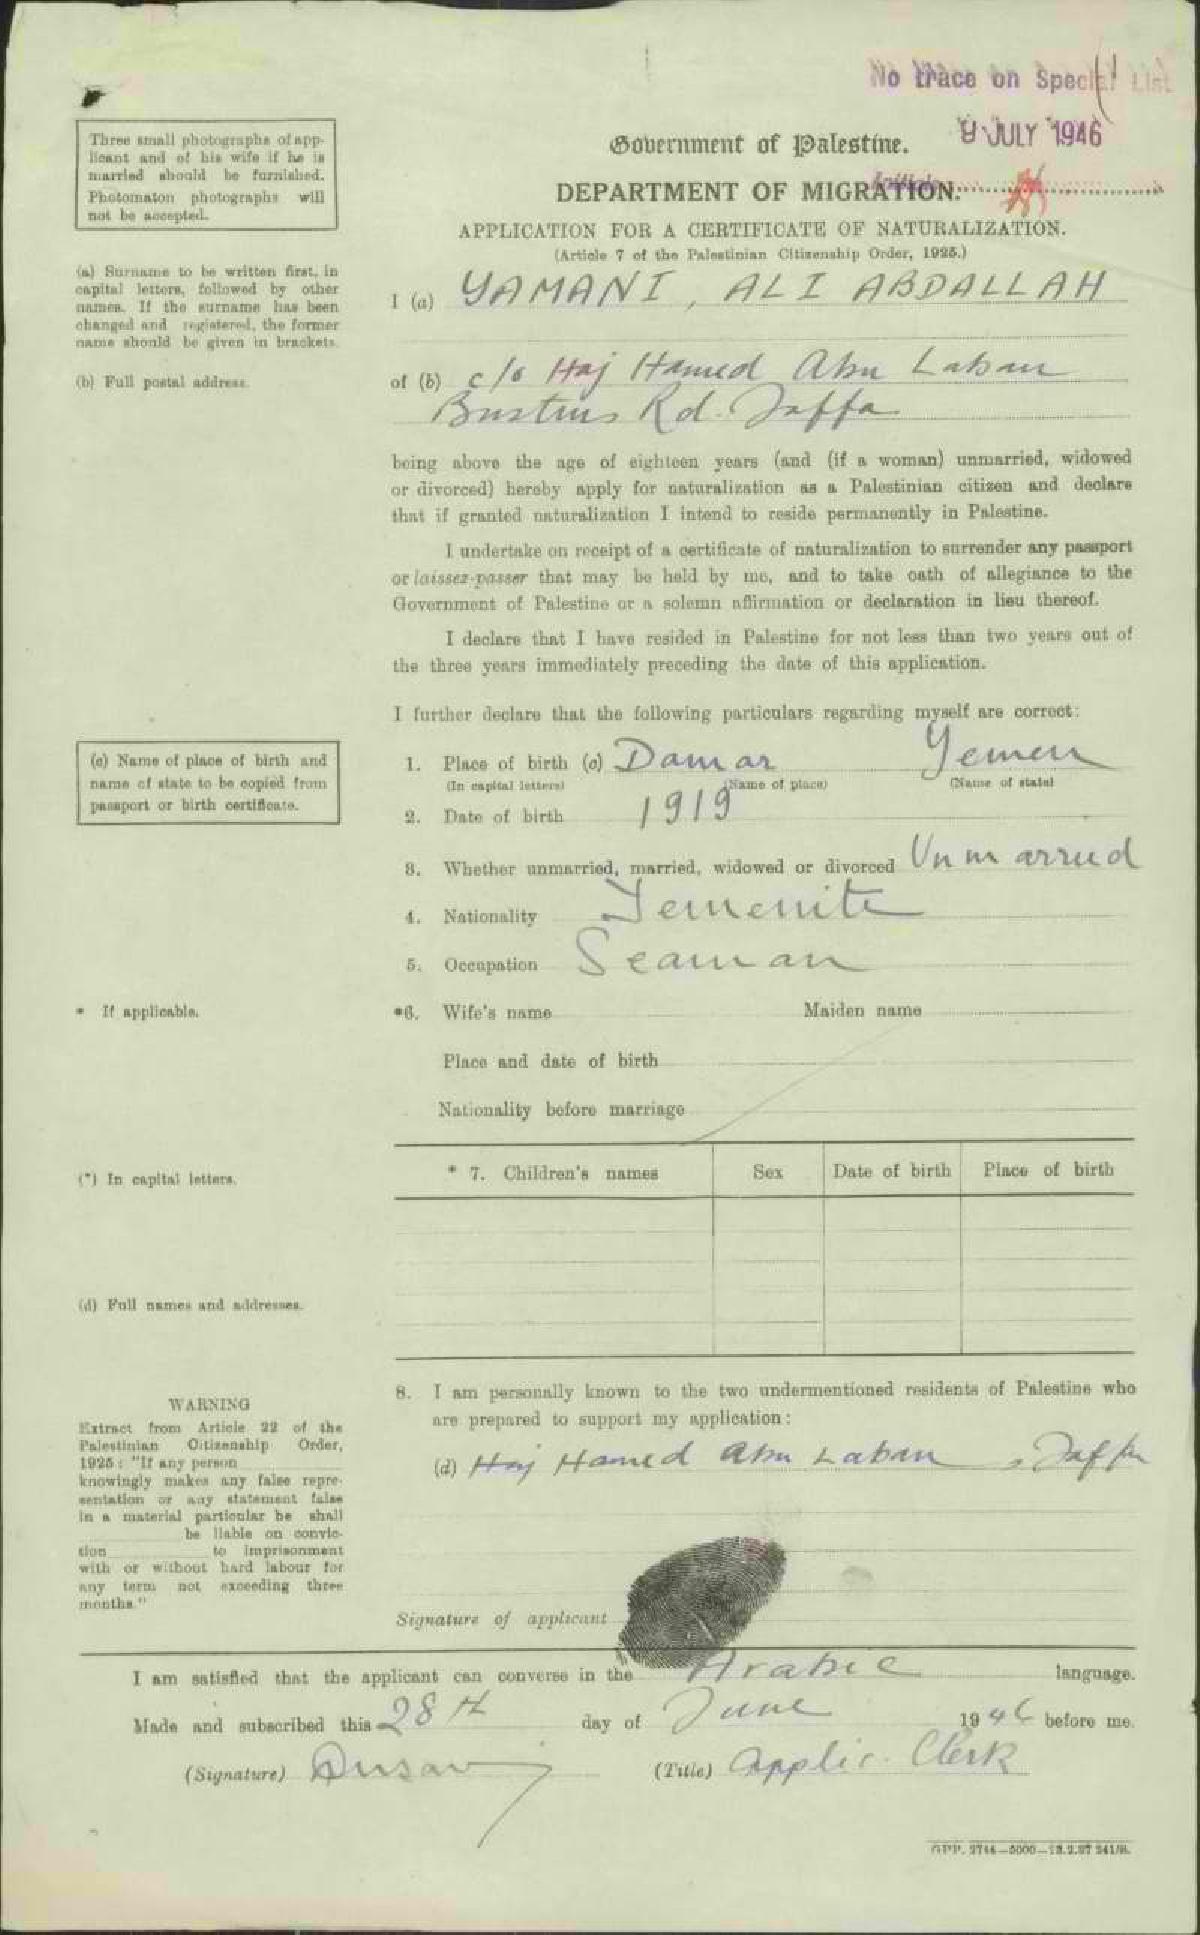 No trace on Special List
9 JULY 1946
Initials
Three small photographs of app-
licant and of his wife if he is
married should be furnished.
Photomaton photographs will
not be accepted.
Government of Palestine.
DEPARTMENT OF MIGRATION.
APPLICATION FOR A CERTIFICATE OF NATURALIZATION.
(Article 7 of the Palestinian Citizenship Order, 1925.)
(a) Surname to be written first, in
capital letters, followed by other
names. If the surname has been
changed and registered, the former
name should be given in brackets.
I (a) YAMANI, ALI ABDALLAH
(b) Full postal address.
of (b) c/o Haj Hamed Abu Laban
Bustrus Rd. Jaffa
being above the age of eighteen years (and (if a woman) unmarried, widowed
or divorced) hereby apply for naturalization as a Palestinian citizen and declare
that if granted naturalization I intend to reside permanently in Palestine.
I undertake on receipt of a certificate of naturalization to surrender any passport
or laissez-passer that may be held by me, and to take oath of allegiance to the
Government of Palestine or a solemn affirmation or declaration in lieu thereof.
I declare that I have resided in Palestine for not less than two years out of
the three years immediately preceding the date of this application.
I further declare that the following particulars regarding myself are correct:
(c) Name of place of birth and
name of state to be copied from
passport or birth certificate.
1. Place of birth (c) Damar Yemen
(In capital letters) (Name of place) (Name of state)
2. Date of birth 1919
3. Whether unmarried, married, widowed or divorced Unmarried
4. Nationality Yemenite
5. Occupation Seaman
* If applicable.
*6. Wife's name Maiden name
Place and date of birth
Nationality before marriage
(*) In capital letters.
* 7. Children's names Sex Date of birth Place of birth
(d) Full names and addresses.
8. I am personally known to the two undermentioned residents of Palestine who
are prepared to support my application:
(d) Haj Hamed Abu Laban, Jaffa
WARNING
Extract from Article 22 of the
Palestinian Citizenship Order,
1925: "If any person
knowingly makes any false repre-
sentation or any statement false
in a material particular be shall
be liable on convic-
tion to imprisonment
with or without hard labour for
any term not exceeding three
months."
Signature of applicant
I am satisfied that the applicant can converse in the Arabic language.
Made and subscribed this 28th day of June 1946 before me.
(Signature) (Title) Applic. Clerk
GPP. 2744—5000—12.2.37 241/S.